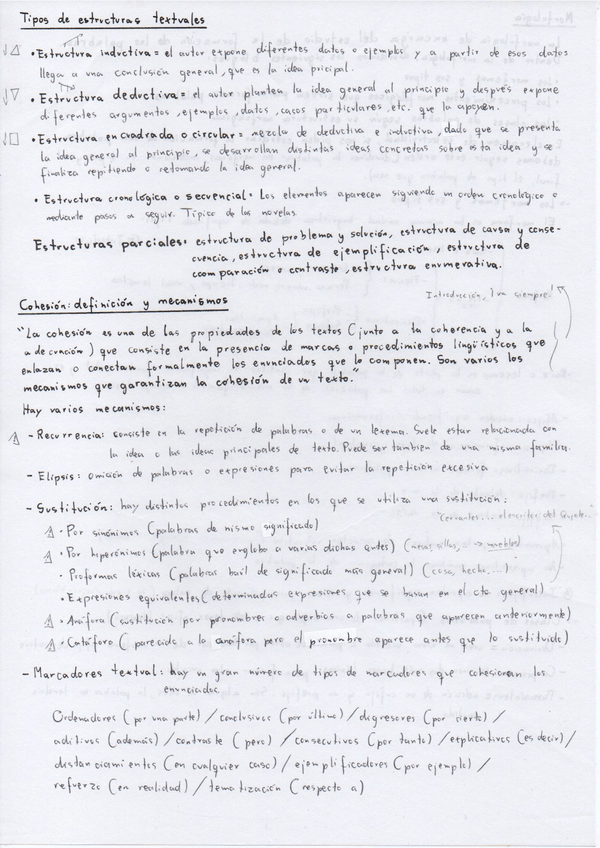 Tipos de estructuras textuales
• Estructura inductiva = el autor expone diferentes datos o ejemplos y a partir de esos datos
llega a una conclusión general, que es la idea pricipal.
• Estructura deductiva = el autor plantea la idea general al principio y después expone
diferentes argumentos, ejemplos, datos, casos particulares, etc. que la apoyen.
• Estructura encuadrada o circular = mezcla de deductiva e inductiva, dado que se presenta
la idea general al principio, se desarrollan distintas ideas concretas sobre esta idea y se
finaliza repitiendo o retomando la idea general.
• Estructura cronológica o secuencial: Los elementos aparecen siguiendo un orden cronológico o
mediante pasos a seguir. Típico de las novelas
Estructuras parciales: estructura de problema y solución, estructura de causa y conse-
cuencia, estructura de ejemplificación, estructura de
comparación o contraste, estructura enumerativa.
Introducción, va siempre!
Cohesión: definición y mecanismos
"La cohesión es una de las propiedades de los textos (junto a la coherencia y a la
adecuación) que consiste en la presencia de marcas o procedimientos lingüísticos que
enlazan o conectan formalmente los enunciados que lo componen. Son varios los
mecanismos que garantizan la cohesión de un texto."
Hay varios mecanismos:
- Recurrencia: consiste en la repetición de palabras o de un lexema. Suele estar relacionada con
la idea o las ideas principales de texto. Puede ser tambien de una misma familia.
- Elipsis: omición de palabras o expresiones para evitar la repetición excesiva
- Sustitución: hay distintos procedimientos en los que se utiliza una sustitución:
"Cervantes... el escritor del Quijote..."
• Por sinónimos (palabras de mismo significado)
• Por hiperónimos (palabra que engloba a varias dichas antes) (mesas, sillas, ... -> muebles)
• Proformas léxicas (palabras baúl de significado más general) (cosa, hecho, ...)
• Expresiones equivalentes (determinadas expresiones que se basan en el cto general)
• Anáfora (sustitución por pronombres o adverbios a palabras que aparecen anteriormente)
• Catáfora (parecido a la anáfora pero el pronombre aparece antes que lo sustituido)
- Marcadores textual: hay un gran número de tipos de marcadores que cohesionan los
enunciados
Ordenadores (por una parte) / conclusivos (por último) / digresores (por cierto) /
aditivos (además) / contraste (pero) / consecutivos (por tanto) / explicativos (es decir) /
distanciamientos (en cualquier caso) / ejemplificadores (por ejemplo) /
refuerzo (en realidad) / tematización (respecto a)